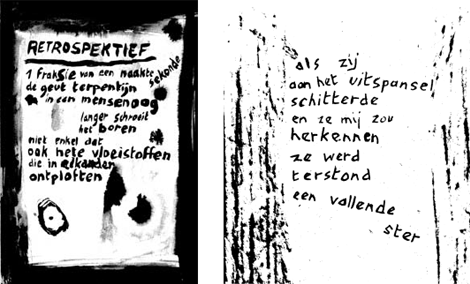 RETROSPEKTIEF
1 fraksie van een naakte sekonde
de geut terpentijn
in een mensenoog
langer schroeit
het boren
niet enkel dat
ook hete vloeistoffen
die in elkander
ontploften
als zij
aan het uitspansel
schitterde
en ze mij zou
herkennen
ze werd
terstond
een vallende
ster